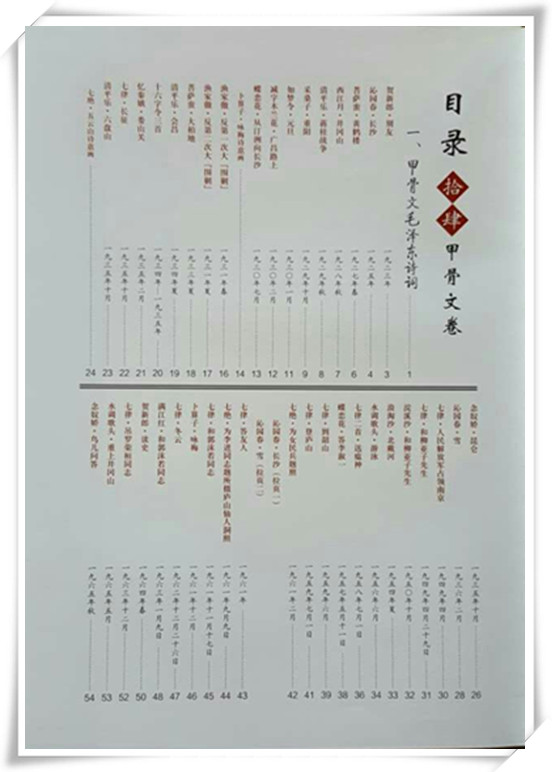 目录
拾肆 甲骨文卷
一、甲骨文毛泽东诗词 1
贺新郎·别友 一九二三年 3
沁园春·长沙 一九二五年 4
菩萨蛮·黄鹤楼 一九二七年春 6
西江月·井冈山 一九二八年秋 7
清平乐·蒋桂战争 一九二九年秋 8
采桑子·重阳 一九二九年十月 9
如梦令·元旦 一九三〇年一月 11
减字木兰花·广昌路上 一九三〇年二月 12
蝶恋花·从汀洲向长沙 一九三〇年七月 13
卜算子·咏梅诗意画 14
渔家傲·反第一次大「围剿」 一九三一年春 16
渔家傲·反第二次大「围剿」 一九三一年夏 17
菩萨蛮·大柏地 一九三三年夏 18
清平乐·会昌 一九三四年夏 19
十六字令三首 一九三四年 一九三五年 20
忆秦娥·娄山关 一九三五年二月 21
七律·长征 一九三五年十月 22
清平乐·六盘山 一九三五年十月 23
七绝·五云山诗意画 24
念奴娇·昆仑 一九三五年十月 26
沁园春·雪 一九三六年二月 28
七律·人民解放军占领南京 一九四九年四月 30
七律·和柳亚子先生 一九四九年四月二十九日 31
浣溪沙·和柳亚子先生 一九五〇年十月 32
浪淘沙·北戴河 一九五四年夏 33
水调歌头·游泳 一九五六年六月 34
七律二首·送瘟神 一九五八年七月一日 36
蝶恋花·答李淑一 一九五七年五月十一日 38
七律·到韶山 一九五九年六月 39
七律·登庐山 一九五九年七月一日 41
七绝·为女民兵题照 一九六一年二月 42
沁园春·长沙（拉页一）
沁园春·雪（拉页二）
七律·答友人 一九六一年 43
七绝·为李进同志题所摄庐山仙人洞照 一九六一年九月九日 44
七律·和郭沫若同志 一九六一年十一月十七日 45
卜算子·咏梅 一九六一年十二月 46
七律·冬云 一九六二年十二月二十六日 47
满江红·和郭沫若同志 一九六三年一月九日 48
贺新郎·读史 一九六四年春 50
七律·吊罗荣桓同志 一九六三年十二月 52
水调歌头·重上井冈山 一九六五年五月 53
念奴娇·鸟儿问答 一九六五年秋 54